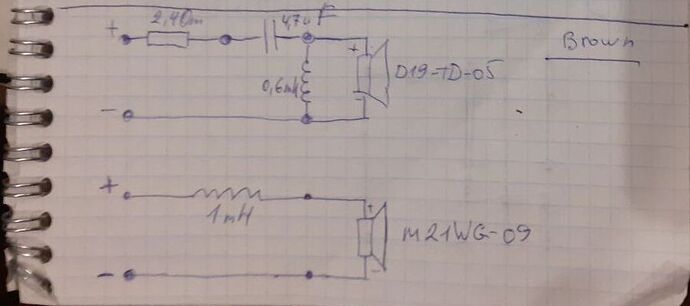 2,4Om
4,7uF
Brown
+
+
0,6mH
D19-TD-05
-
+
+
1mH
M21WG-09
-